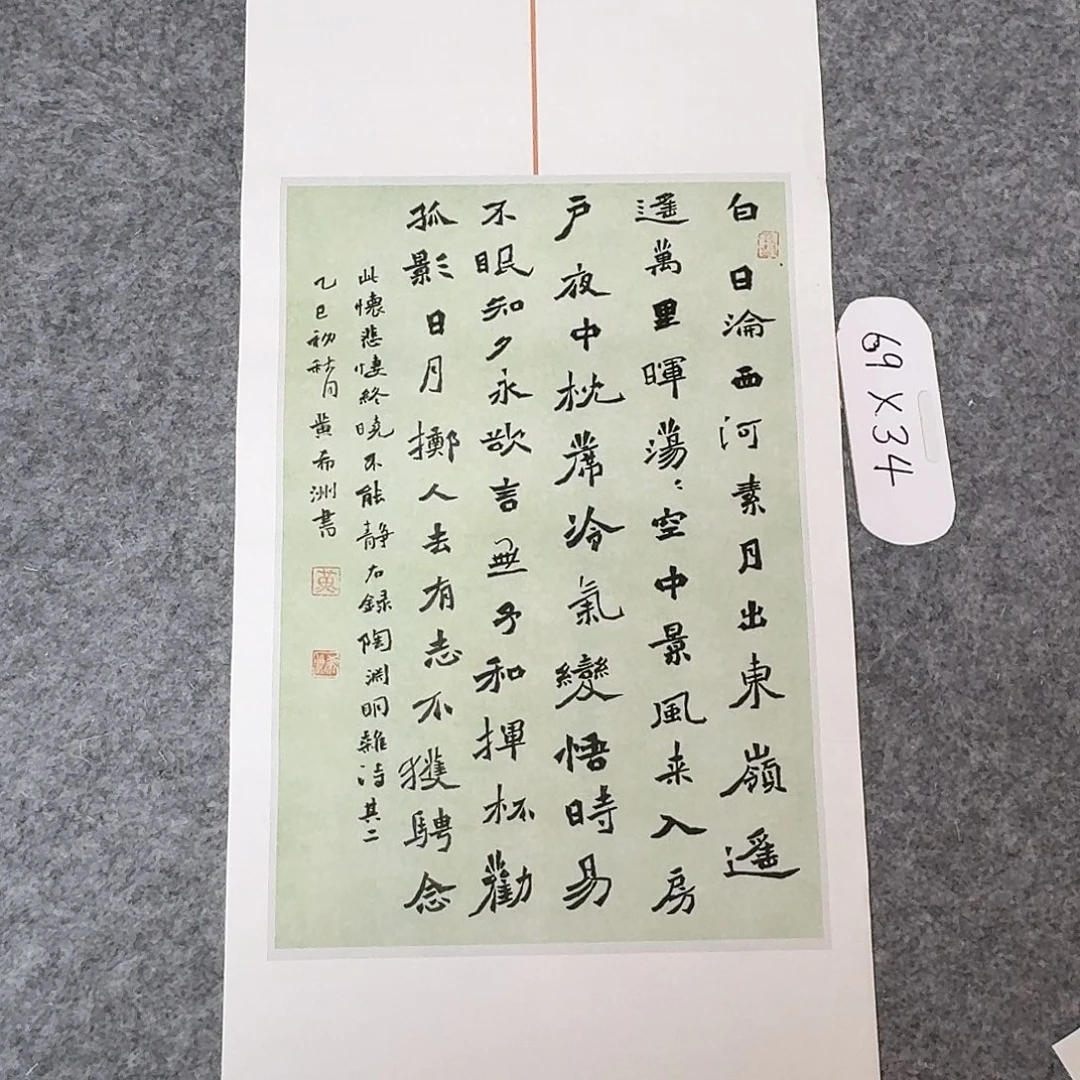 白日淪西河素月出東嶺遥
遥萬里暉蕩〻空中景風来入房
戶夜中枕席冷氣變悟時易
不眠知夕永欲言無予和揮杯勸
孤影日月擲人去有志不獲騁念
此懷悲悽終曉不能静右録陶淵明雜诗其二
乙巳初秋月黄希洲書
黄
69X34